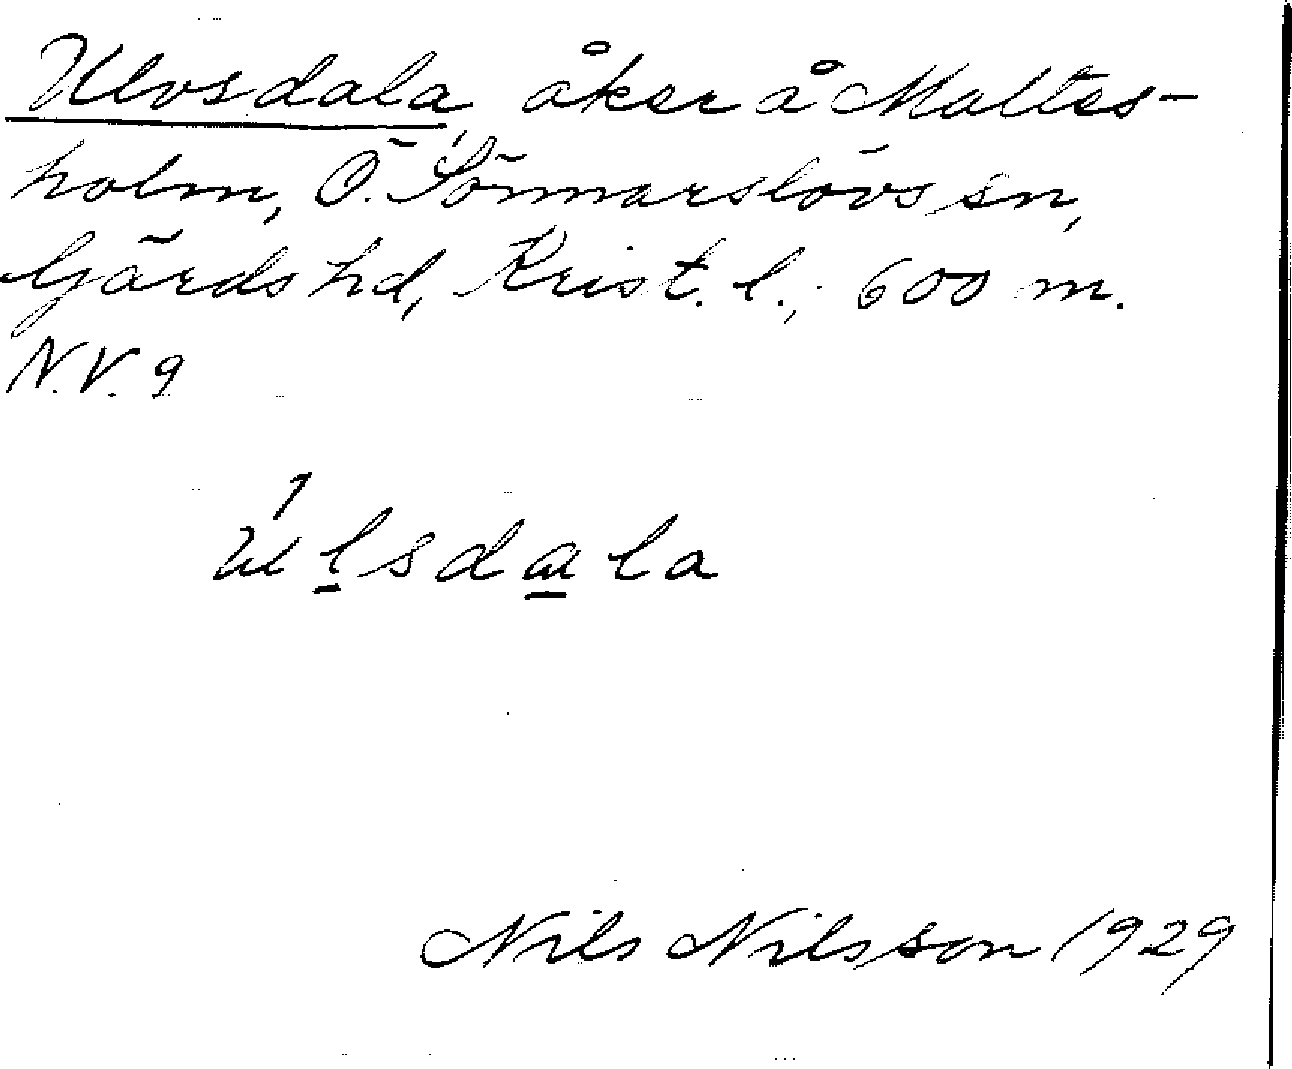 Ulvsdala, åker å Maltes-
holm, Ö. Sönnarslövs sn,
Gärds hd, Krist. l.; 600 m.
N.V. 9
úl̲sda̲la
Nils Nilsson 1929